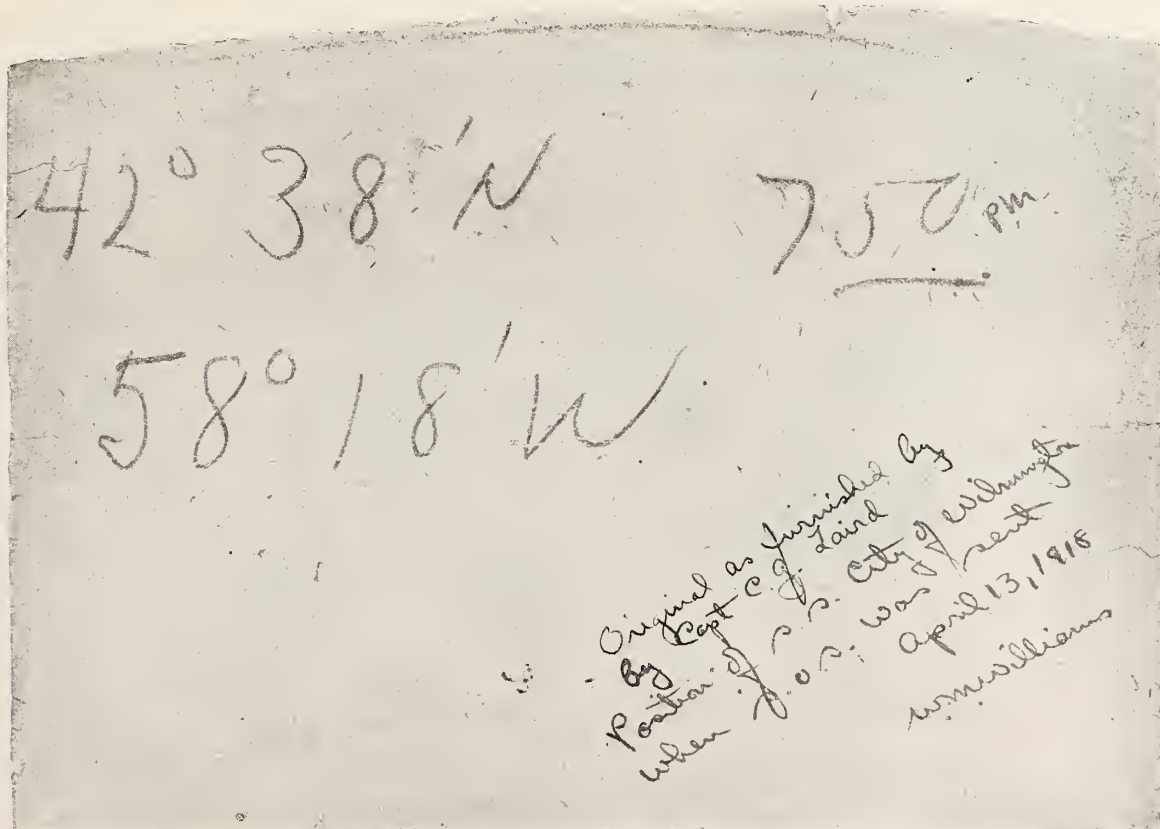 42° 38' N 750 pm
58° 18' W
Original as furnished by
by Capt C. J. Laird
Position of S.S. City of Wilmington
when S.O.S. was sent
April 13, 1918
W.M. Williams